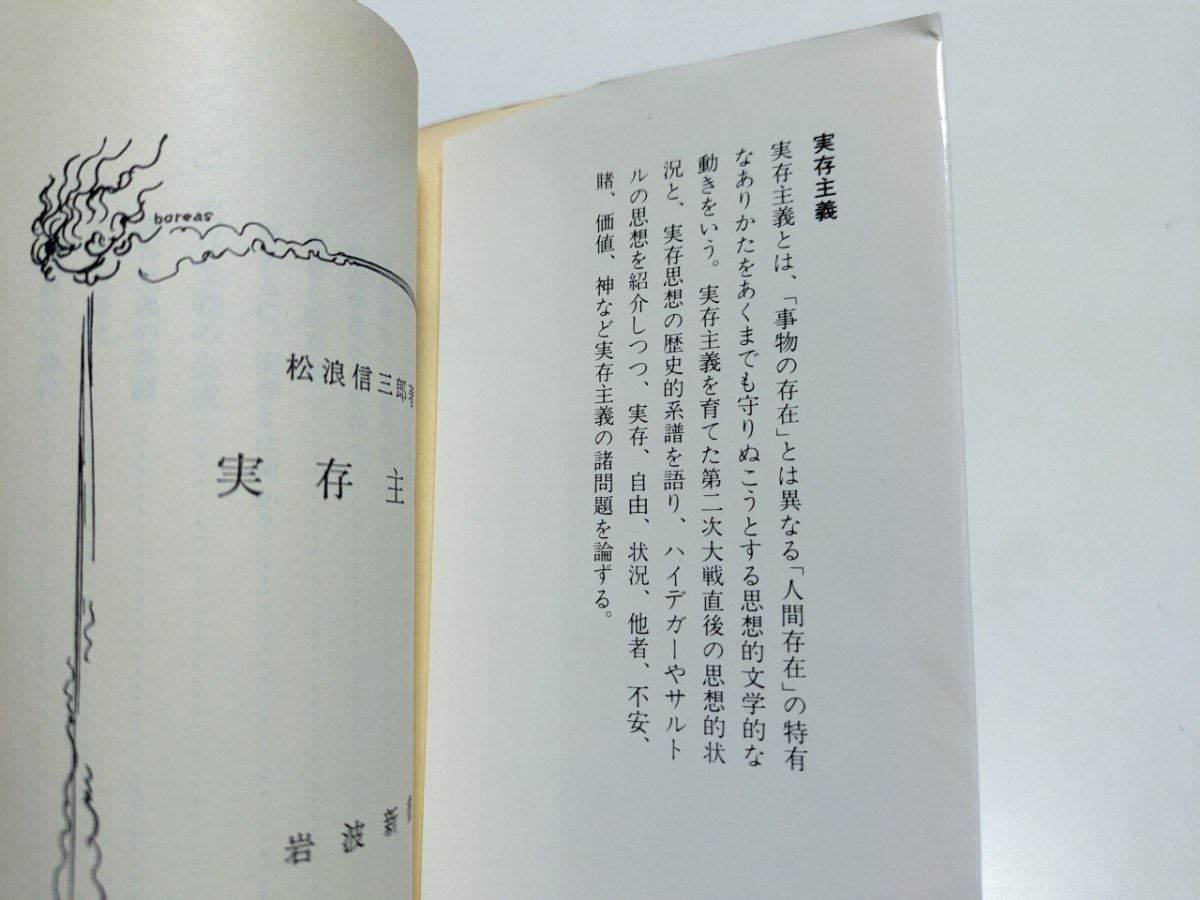 実存主義
実存主義とは、「事物の存在」とは異なる「人間存在」の特有
なありかたをあくまでも守りぬこうとする思想的文学的な
動きをいう。実存主義を育てた第二次大戦直後の思想的状
況と、実存思想の歴史的系譜を語り、ハイデガーやサルト
ルの思想を紹介しつつ、実存、自由、状況、他者、不安、
賭、価値、神など実存主義の諸問題を論ずる。
boreas
松浪信三郎著
実存主
岩波新